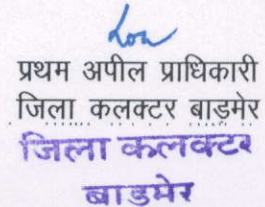 प्रथम अपील प्राधिकारी
जिला कलक्टर बाड़मेर
जिला कलक्टर
बाडमेर